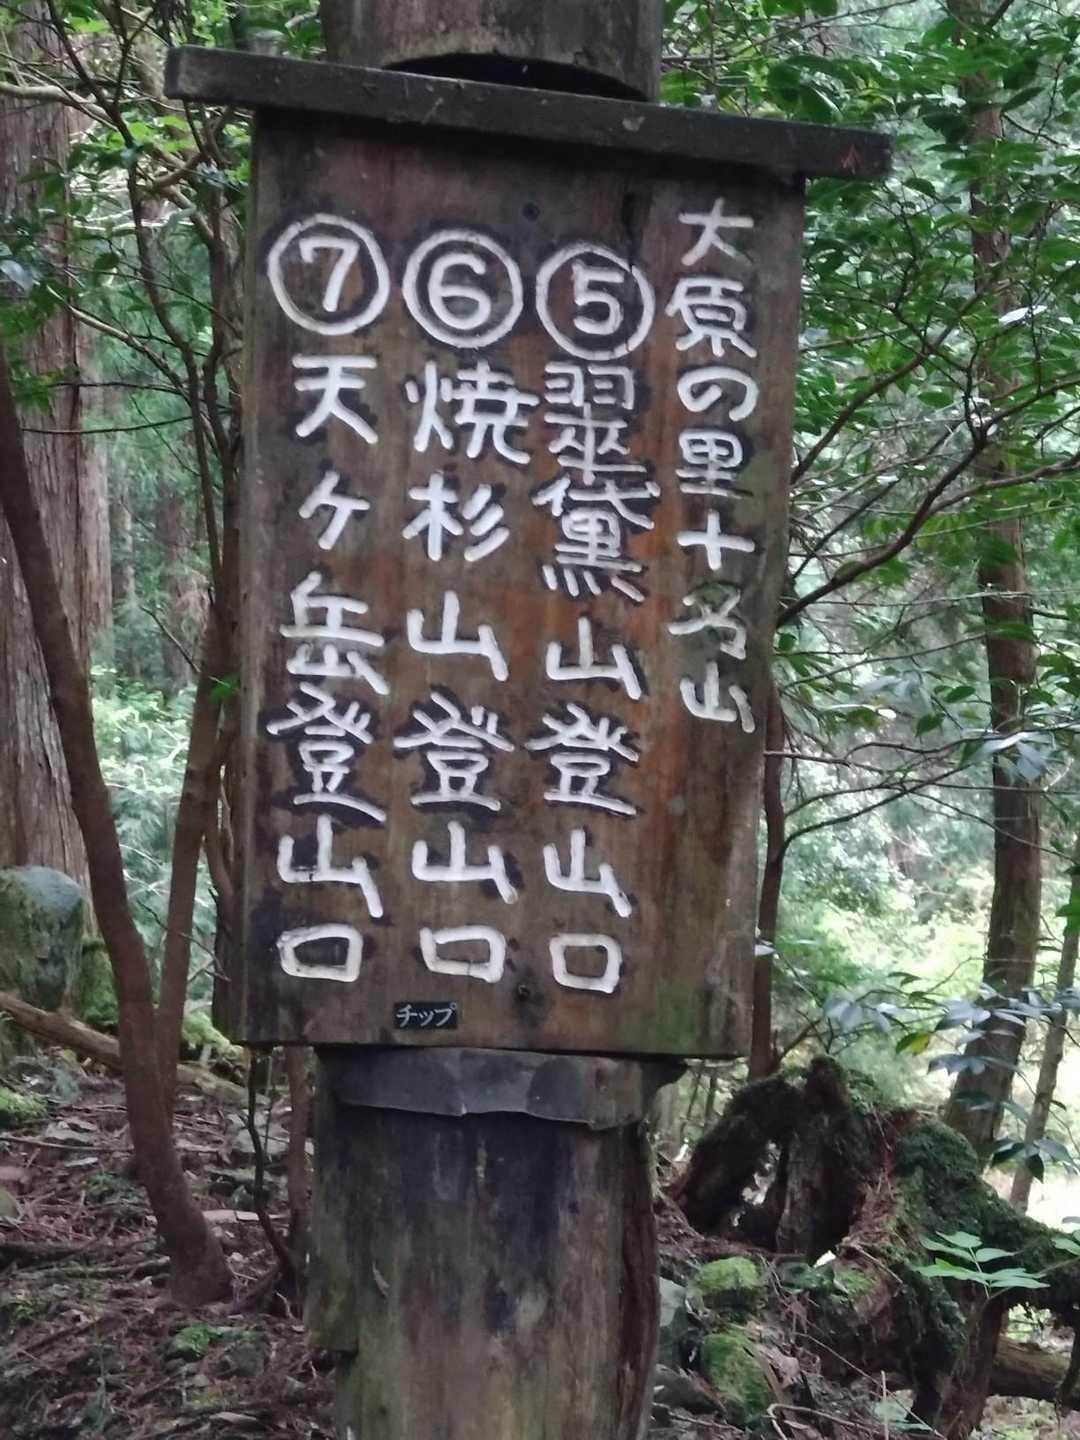 大原の里十名山
⑤翠黛山登山口
⑥焼杉山登山口
⑦天ヶ岳登山口
チップ